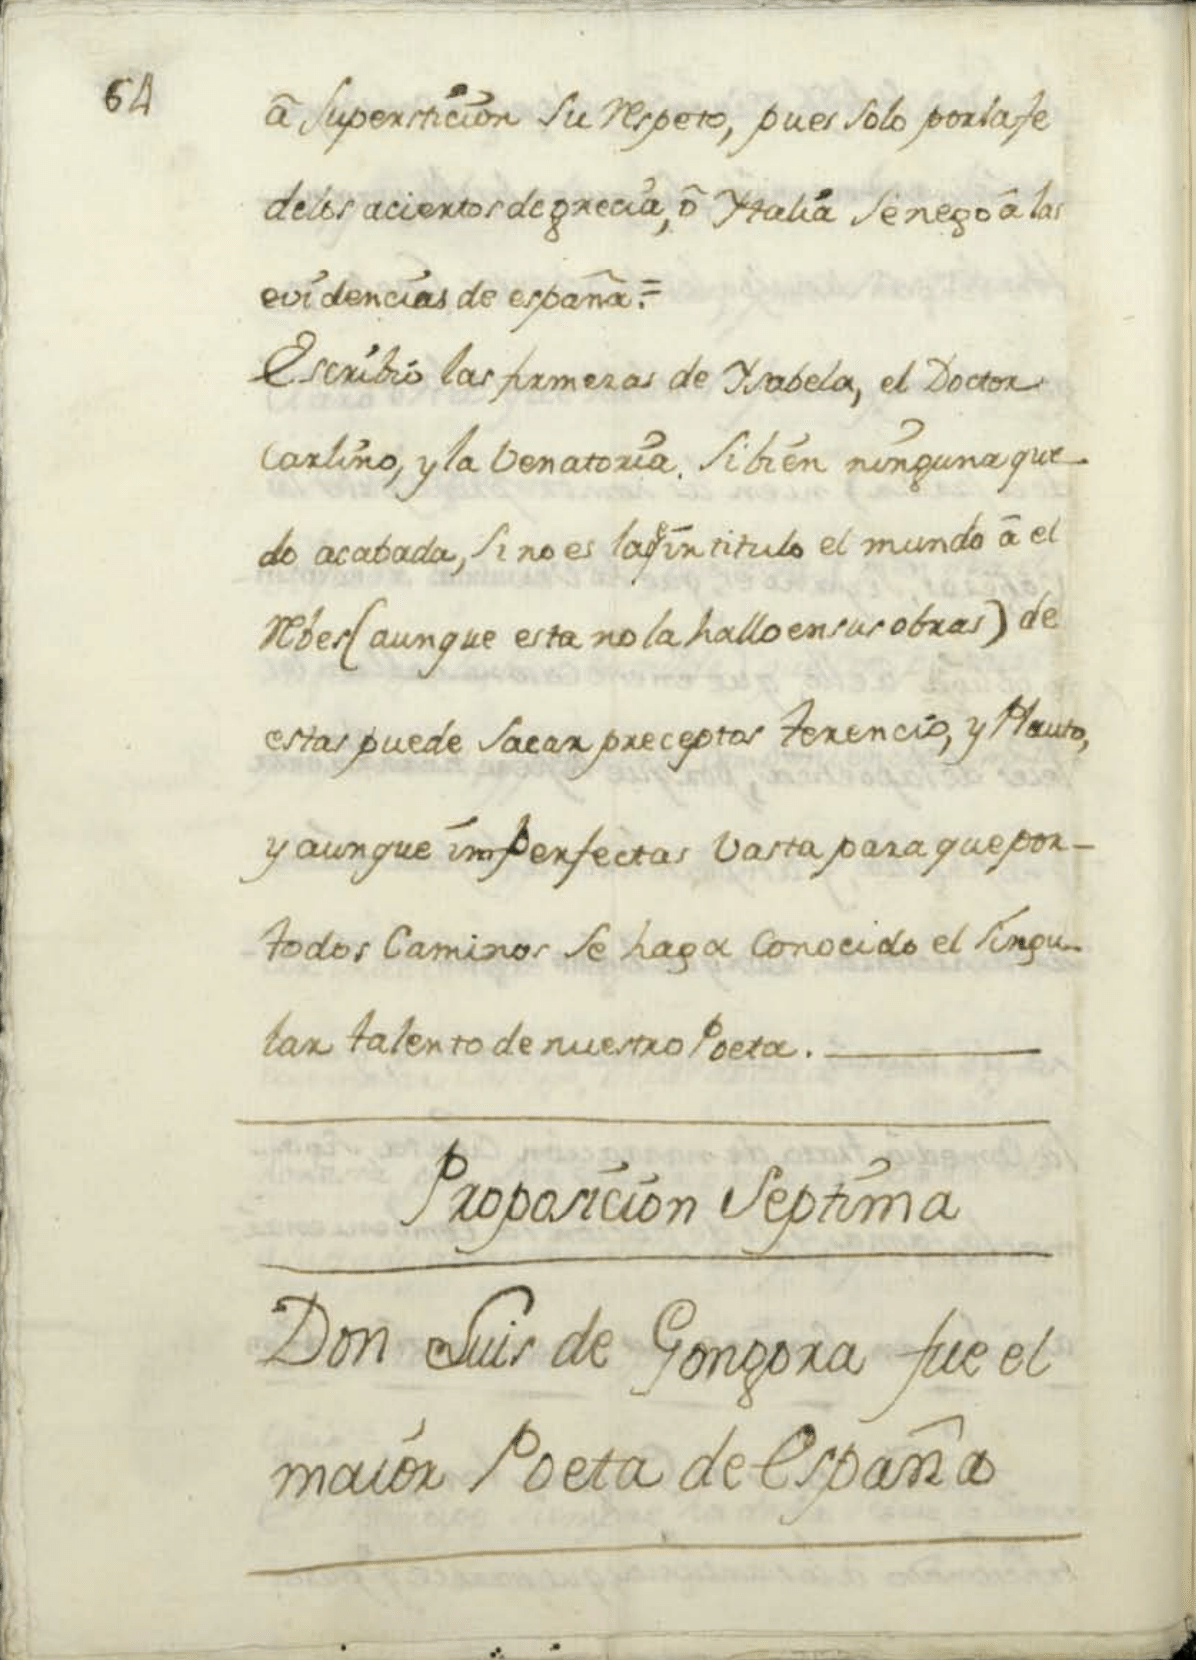 64
â Superstición Su Respeto, pues Solo porlafe
delos aciertos de grecia, ô Ytalia Se negoâ las
evidencias de españa.=
Escribió las firmezas de Ysabela, el Doctor
Carlino, y la Venatoria. Si bien ninguna que-
do acabada, Si no es laq̃ intitulo el mundo â el
Rbes (aunque esta no la hallo en sus obras) de
estas puede Sacar preceptos terencio, y Plauto,
y aunque imperfectas Vasta para que por-
todos Caminos Se haga Conocido el Singu-
lar talento de nuestro Poeta.
Proposición Septima
Don Luis de Gongora fue el
maior Poeta de España